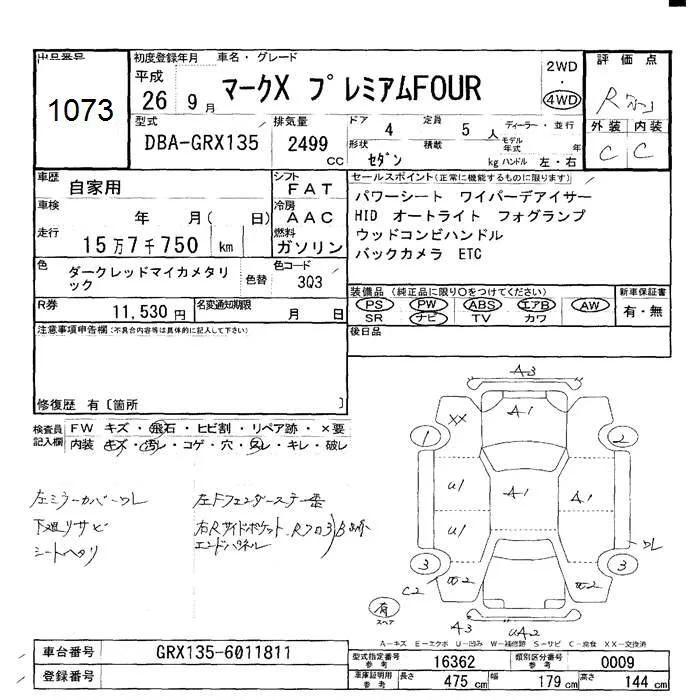 出品番号
1073
初度登録年月
平成
26年 9月
車名・グレード
マークX プレミアムFOUR
2WD
・
4WD
評価点
R
外装 内装
C C
型式
DBA-GRX135
排気量
2499
CC
ドア
4
定員
5 人
形状
セダン
積載
kg
ディーラー・並行
モデル
年式
年
ハンドル 左・右
車歴
自家用
シフト
FAT
車検
年 月( 日)
冷房
AAC
走行
15万7千750 km
燃料
ガソリン
セールスポイント(正常に機能するものに限ります)
パワーシート ワイパーデアイサー
HID オートライト フォグランプ
ウッドコンビハンドル
バックカメラ ETC
色
ダークレッドマイカメタリ
ック
色替
色コード
3Q3
装備品 (純正品に限り○をつけてください)
PS PW ABS エアB AW
SR ナビ TV カワ
新車保証書
有・無
R券
11,530 円
名変通知期限
月 日
後日品
注意事項申告欄(不具合内容等は具体的に記入して下さい)
修復歴 有〔箇所 〕
検査員
記入欄
FW キズ・飛石・ヒビ割・リペア跡・×要
内装 キズ・汚レ・コゲ・穴・スレ・キレ・破レ
左ミラーカバーワレ
下廻りサビ
シートヘタリ
左Fフェンダーステー
右Rサイドポケット、Rフロア
エンドパネル
A3
A1
XX
1
2
U1
A1
A1
U1
3
3
ワレ
C2
A3
UA2
有
スペア
A-キズ E-エクボ U-凹み W-補修跡 S-サビ C-腐食 XX-交換済
車台番号
GRX135-6011811
登録番号
型式指定番号
参考
16362
類別区分番号
参考
0009
車庫証明用
参考
長さ
475 cm
幅
179 cm
高さ
144 cm